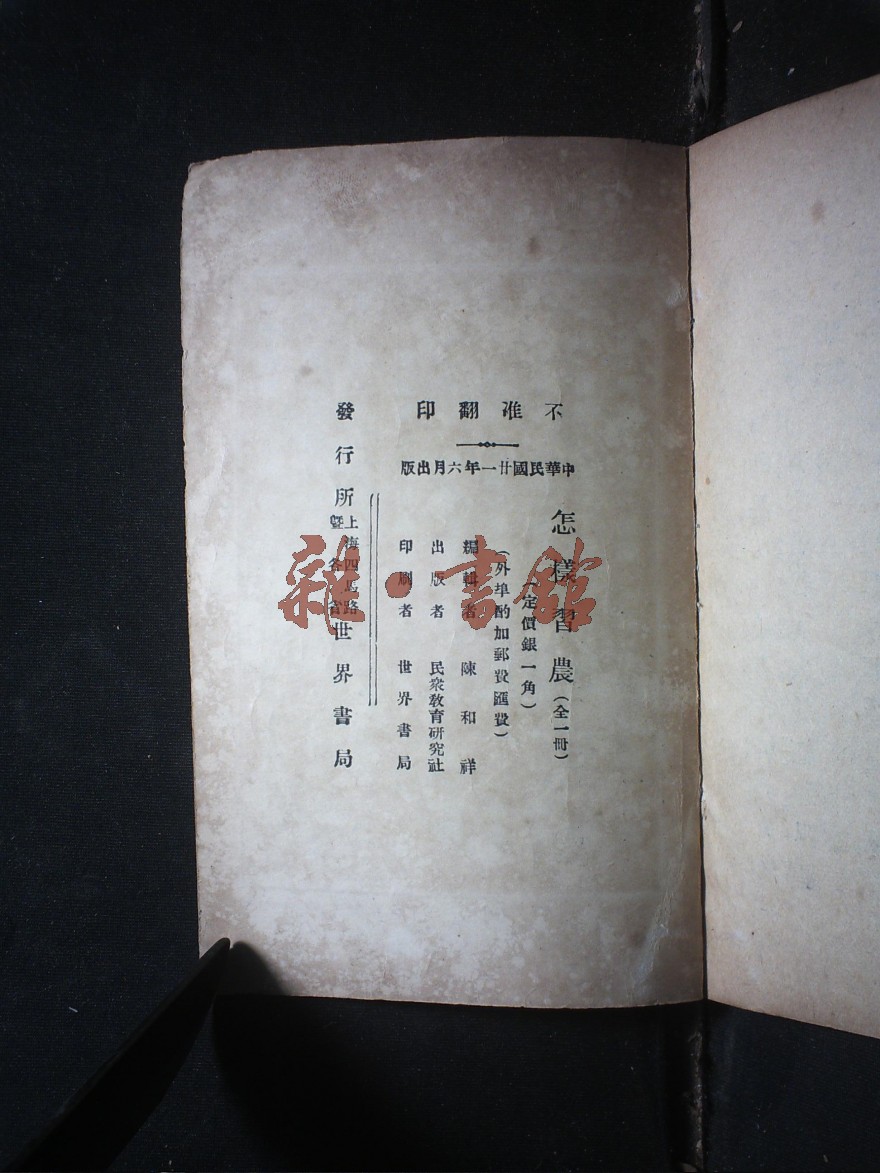 不准翻印
中華民國廿一年六月出版
怎樣習農(全一冊)
(定價銀一角)
(外埠酌加郵費匯費)
編輯者 陳和祥
出版者 民衆敎育研究社
印刷者 世界書局
發行所 上海四馬路
暨各省
世界書局
雜·書館